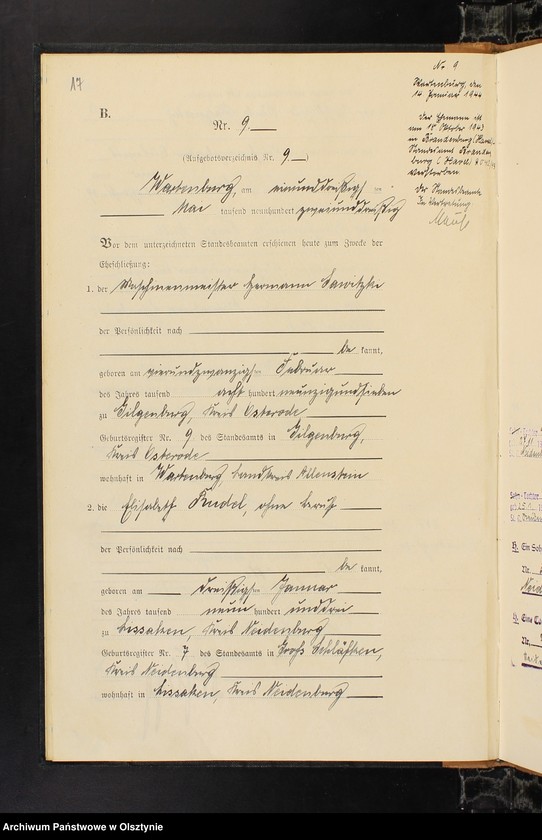 17
B.
Nr. 9
(Aufgebotsverzeichnis Nr. 9)
Wartenburg, am einunddreißigsten
Mai tausend neunhundert zweiunddreißig
Vor dem unterzeichneten Standesbeamten erschienen heute zum Zwecke der
Eheschließung:
1. der Maschinenmeister Hermann Sawitzki
der Persönlichkeit nach
be kannt,
geboren am vierundzwanzigsten Februar
des Jahres tausend acht hundert neunzigundsieben
zu Gilgenburg, Kreis Osterode
Geburtsregister Nr. 9 des Standesamts in Gilgenburg,
Kreis Osterode
wohnhaft in Wartenburg, Landkreis Allenstein
2. die Elisabeth Kudel, ohne Beruf
der Persönlichkeit nach
be kannt,
geboren am dreißigsten Januar
des Jahres tausend neun hundert und drei
zu Lissaken, Kreis Neidenburg
Geburtsregister Nr. 7 des Standesamts in Groß Schläfken,
Kreis Neidenburg
wohnhaft in Lissaken, Kreis Neidenburg
No 9
Wartenburg, den
14 Januar 1944
Der Ehemann ist
am 18 Oktober 1943
in Brandenburg (Havel)
Standesamt Branden
burg (Havel)
verstorben
Der Standesbeamte
In Vertretung
Archiwum Państwowe w Olsztynie